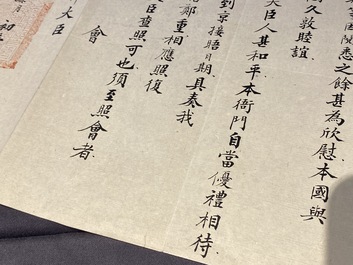 西陝悉之餘甚為欣慰本國與
久敦睦誼
大臣人甚和平本衙門自當優禮相待
到京接晤日期具奏我
鄭重相應照復
臣查照可也須至照會者
會
大臣